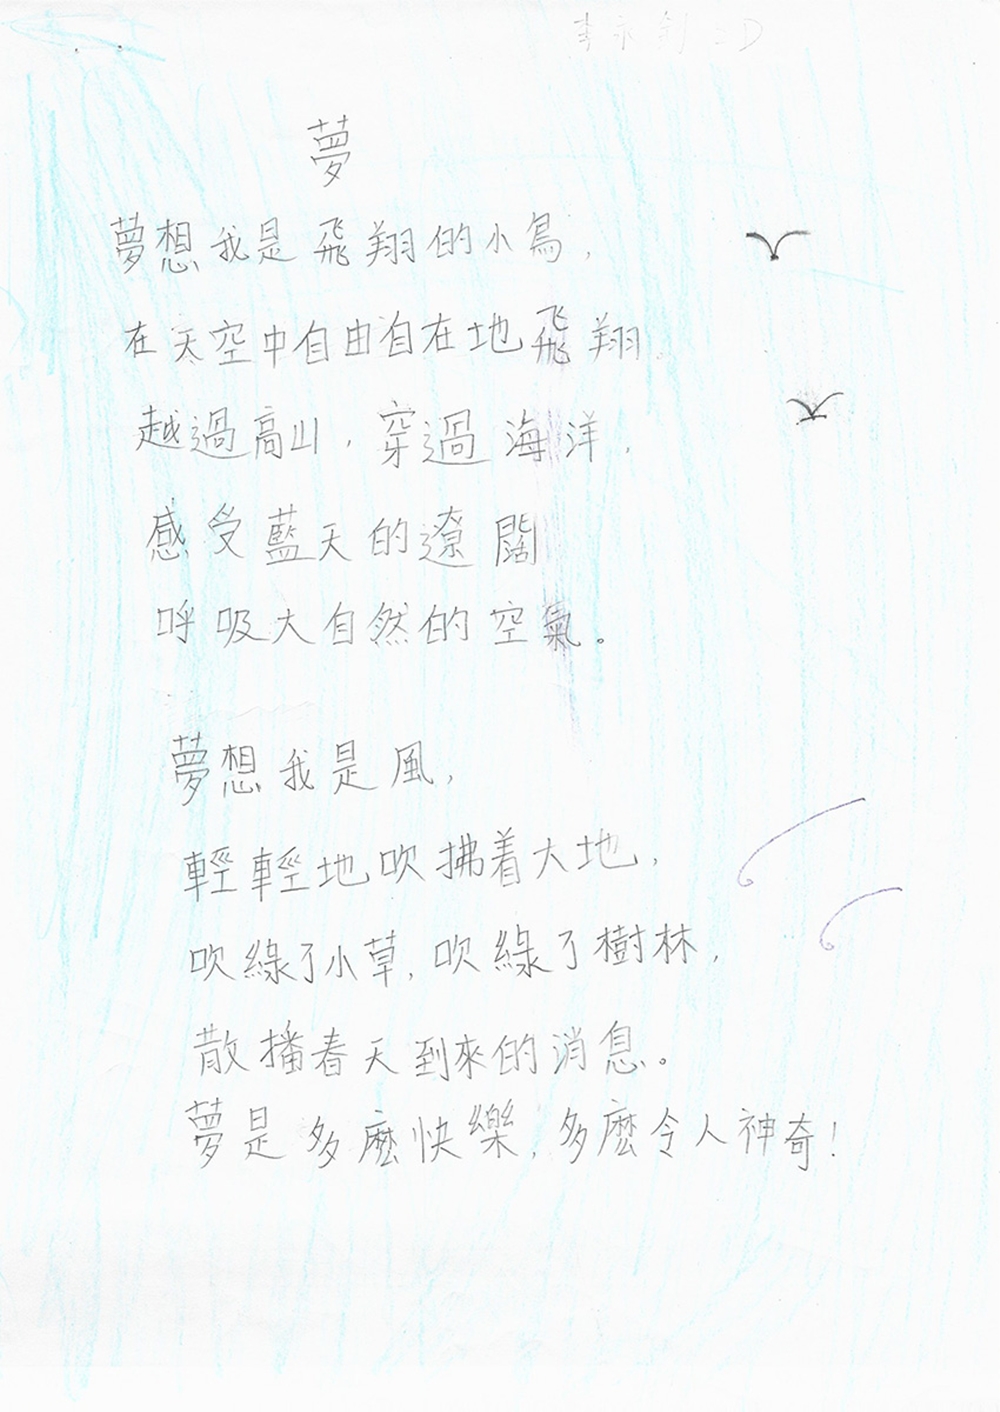 夢
夢想我是飛翔的小鳥,
在天空中自由自在地飛翔
越過高山,穿過海洋,
感受藍天的遼闊
呼吸大自然的空氣。
夢想我是風,
輕輕地吹拂着大地,
吹綠了小草,吹綠了樹林,
散播春天到來的消息。
夢是多麽快樂,多麽令人神奇!